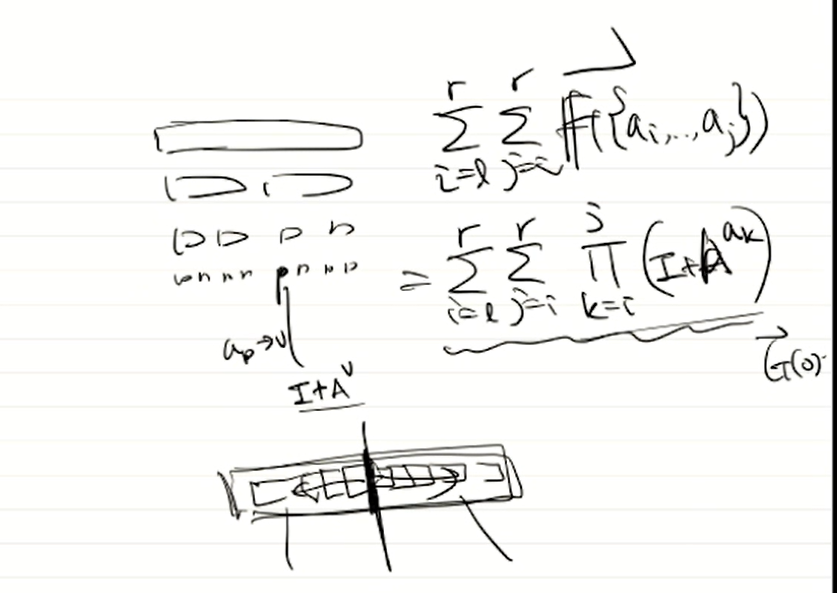 $\sum_{i=l}^{r} \sum_{j=i}^{r} \vec{F}(\{a_i,..,a_j\})$
$= \sum_{i=l}^{r} \sum_{j=i}^{r} \prod_{k=i}^{j} (I+A^{a_k})$
$a_p \to v$
$\vec{G}(0)$
$I+A^v$